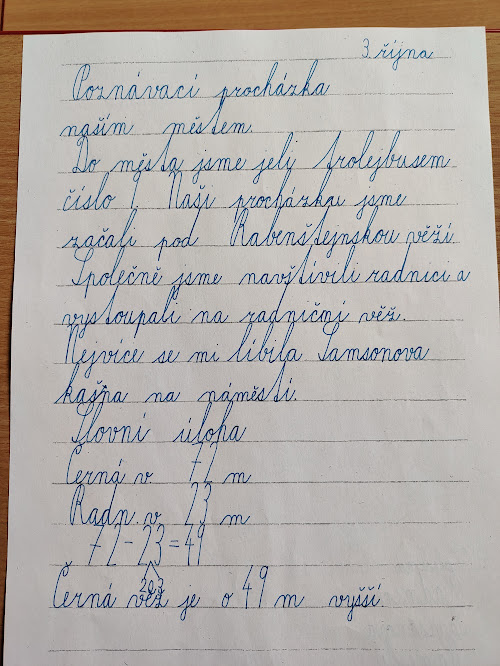 3. října
Poznávací procházka
naším městem.
Do města jsme jely trolejbusem
číslo 1. Naši procházku jsme
začali pod Rabenštejnskou věží
Společně jsme navštívili radnici a
vystoupali na radniční věž.
Nejvíce se mi líbila Samsonova
kašna na náměstí.
Slovní úloha
Černá v 72 m
Radn. v 23 m
72 - 23 = 49
20 3
Černá věž je o 49 m vyšší.